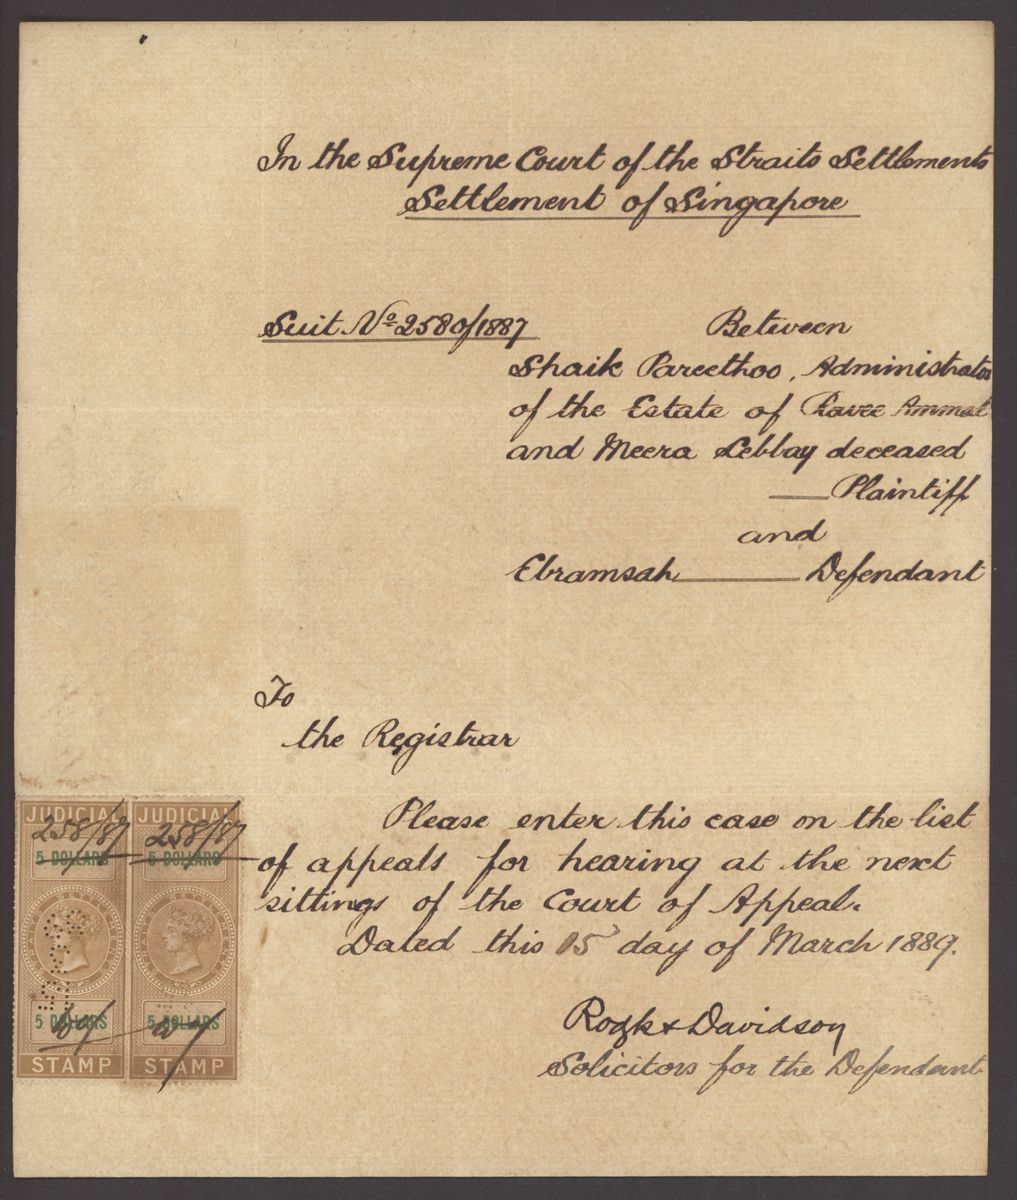 In the Supreme Court of the Straits Settlements
Settlement of Singapore
Suit No 258 of/1887
Between
Shaik Pareethoo, Administrator
of the Estate of Ammal
and Meera Lebbay deceased
— Plaintiff
and
Ebramsah — Defendant
To
the Registrar
Please enter this case on the list
of appeals for hearing at the next
sittings of the Court of Appeal.
Dated this 15 day of March 1889.
& Davidson
Solicitors for the Defendant
JUDICIAL
258/87
5 DOLLARS
5 DOLLARS
STAMP
JUDICIAL
258/87
5 DOLLARS
5 DOLLARS
STAMP